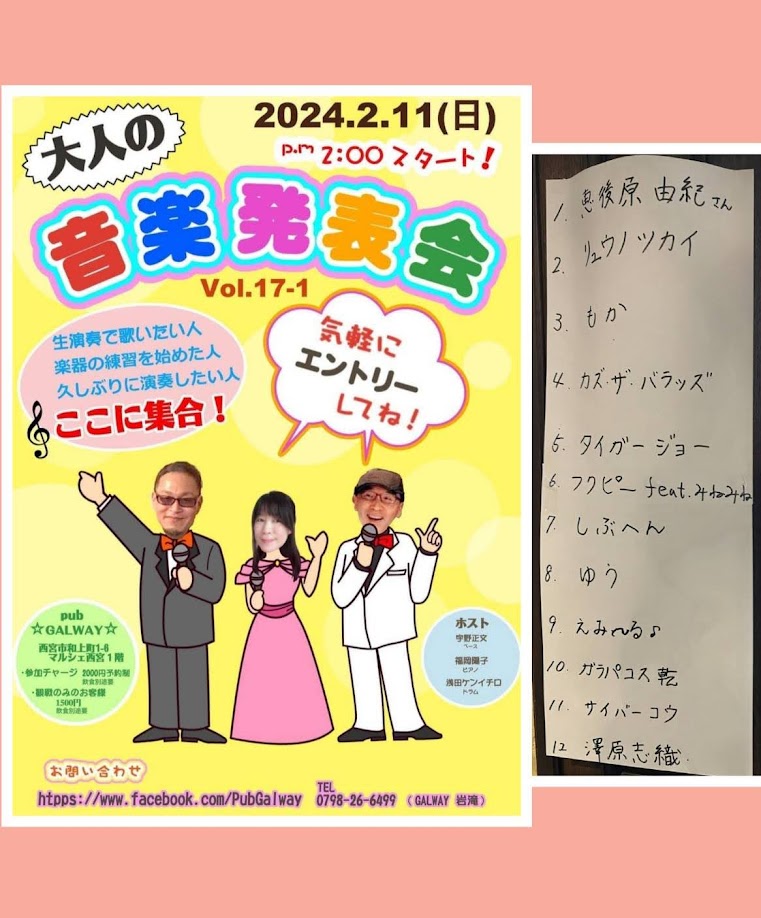 大人の
2024.2.11(日)
p.m 2:00スタート!
音楽発表会
Vol.17-1
生演奏で歌いたい人
楽器の練習を始めた人
久しぶりに演奏したい人
ここに集合!
気軽に
エントリー
してね!
pub
☆GALWAY☆
西宮市和上町1-6
マルシェ西宮1階
・参加チャージ 2000円予約制
飲食別途要
・観戦のみのお客様
1500円
飲食別途要
ホスト
宇野正文
ベース
福岡陽子
ピアノ
浅田ケンイチロ
ドラム
お問い合わせ
htpps://www.facebook.com/PubGalway
TEL
0798-26-6499 (GALWAY 岩滝)
1. 恵後原 由紀さん
2. リュウノツカイ
3. もか
4. カズ・ザ・バラッズ
5. タイガージョー
6. フクピー feat.みねみね
7. しぶへん
8. ゆう
9. えみ〜る♪
10. ガラパコス乾
11. サイバーコウ
12 澤原志織.